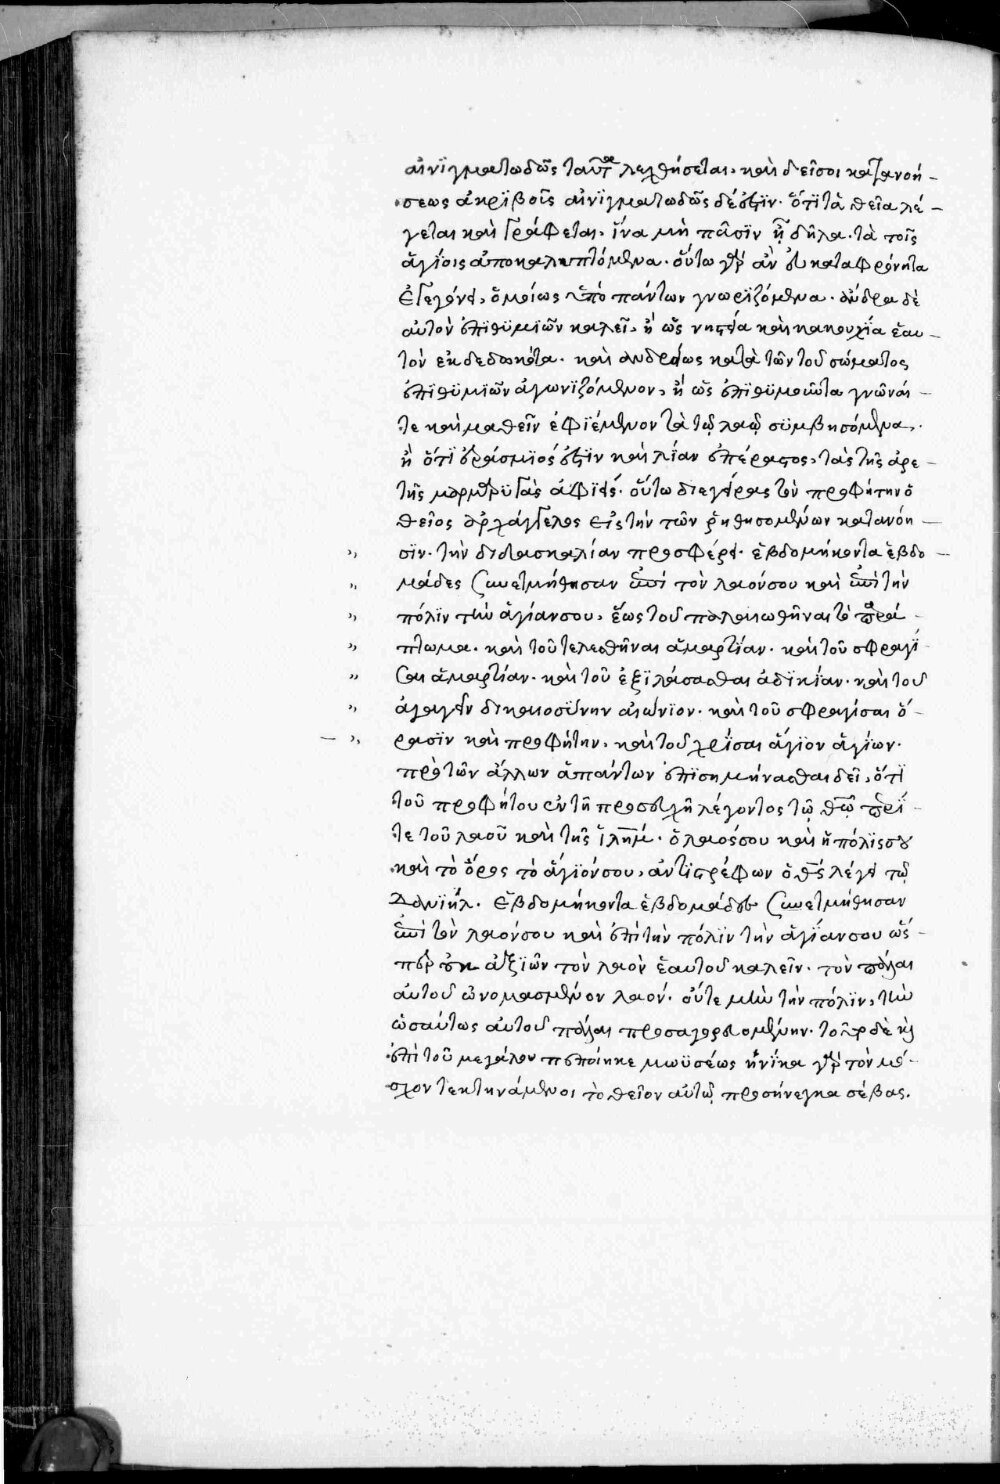 αἰνϊγματωδῶς ταῦτα λεχθήσεται, καὶ δεῖσοι κατανοή-
σεως ἀκρϊβοῦς αἰνϊγματωδῶς δέ ἐστϊν. ὅτϊ τὰ θεῖα λέ-
γεται καὶ γράφεται, ἵνα μὴ πᾶσϊν ᾖ δῆλα. τὰ τοῖς
ἁγΐοις ἀποκαλυπτόμενα. οὕτω γὰρ ἂν εὐκαταφρόνητα
ἐγεγόνει, ὁμοίως ὑπὸ πάντων γνωρϊζόμενα. ἄνδρα δὲ
αὐτὸν ἐπϊθϋμιῶν καλεῖ, ἢ ὡς νηστεία καὶ κακουχΐα ἑαυ-
τὸν ἐκδεδωκότα. καὶ ἀνδρείως κατὰ τῶν τοῦ σώματος
ἐπϊθϋμιῶν ἀγωνϊζόμενον, ἢ ὡς ἐπϊθϋμοῦντα γνῶναί-
τε καὶ μαθεῖν ἐφϊέμενον τὰ τῷ λαῷ σϋμβησόμενα,
ἢ ὅτϊ ἐράσμϊός ἐστϊν καὶ λίαν ἐπέραστος, τὰς τῆς ἀρε-
τῆς μαρμαρϋγὰς ἀφϊείς. οὕτω διεγείρας τὸν προφήτην ὁ
θεῖος ἀρχάγγελος εἰς τὴν τῶν ῥηθησομένων κατανόη-
σϊν. τὴν διδασκαλίαν προσφέρει. ἑβδομήκοντα ἑβδο-
μάδες συνετμήθησαν ἐπὶ τὸν λαόν σου καὶ ἐπὶ τὴν
πόλϊν τὴν ἁγίαν σου, ἕως τοῦ παλαιωθῆναι τὸ παρά-
πτωμα. καὶ τοῦ τελεσθῆναι ἁμαρτίαν. καὶ τοῦ σφραγΐ-
σαι ἁμαρτίαν. καὶ τοῦ ἐξϊλάσασθαι ἀδϊκίαν. καὶ τοῦ
ἀγαγεῖν δικαιοσϋνην αἰώνϊον. καὶ τοῦ σφραγίσαι ὅ-
ρασϊν καὶ προφήτην, καὶ τοῦ χρΐσαι ἅγϊον ἁγίων.
πρὸ τῶν ἄλλων ἁπάντων ἐπϊσημήνασθαι δεῖ, ὅτϊ
τοῦ προφήτου ἐν τῆ προσευχῆ λέγοντος τῷ θ͞ῷ περΐ-
τε τοῦ λαοῦ καὶ τῆς ἱλ͞ήμ. ὁ λαός σου καὶ ἡ πόλϊς σου
καὶ τὸ ὄρος τὸ ἅγϊόν σου, ἀντϊστρέφων ὁ θ͞ς λέγει τῷ
Δανϊήλ. ἑβδομήκοντα ἑβδομάδες συνετμήθησαν
ἐπὶ τὸν λαόν σου καὶ ἐπὶ τὴν πόλϊν τὴν ἁγΐαν σου ὥσ-
περ οὐκ ἀξϊῶν τὸν λαὸν ἑαυτοῦ καλεῖν. τὸν πάλαι
αὐτοῦ ὠνομασμένον λαόν. οὔτε μὴν τὴν πόλϊν, τὴν
ὡσαύτως αὐτοῦ πάλαι προσαγορευομένην. τοῦτο δὲ κὶ
ἐπὶ τοῦ μεγάλου πεποίηκε μωϋσέως ἡνΐκα γὰρ τὸν μό-
σχον τεκτηνάμενοι τὸ θεῖον αὐτῷ προσήνεγκα σέβας.